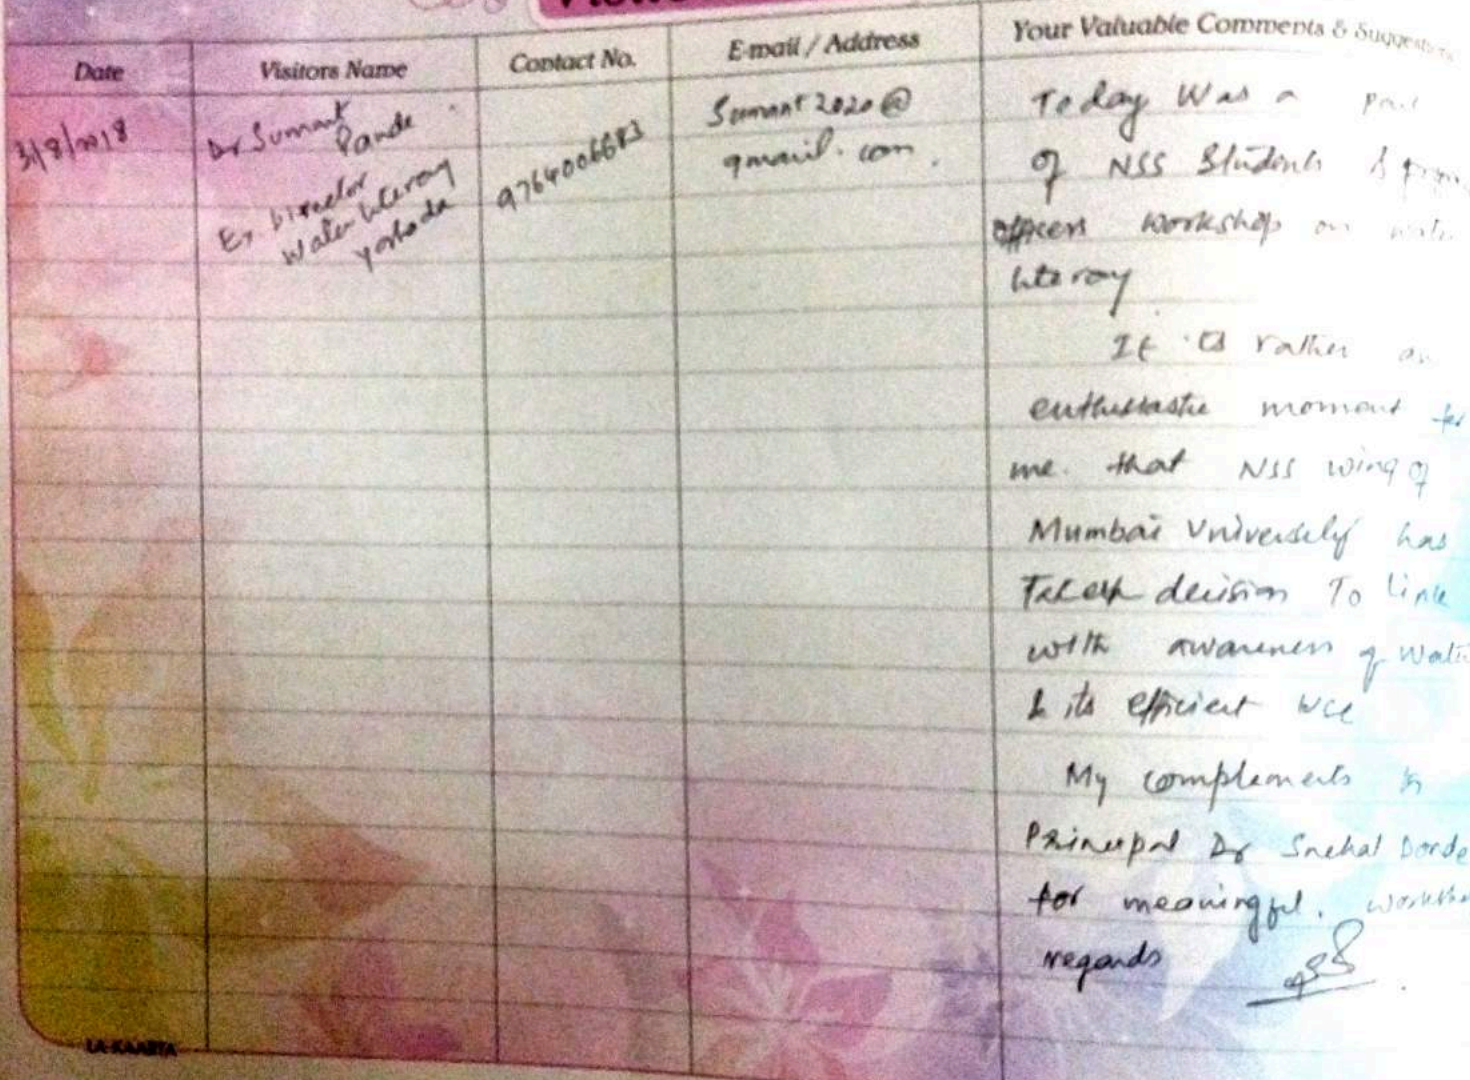 Date
Visitors Name
Contact No.
E-mail / Address
Your Valuable Comments & Suggestions
3/8/2018
Dr Sumant
Pande
Ex. Director
Water literacy
Yashada
Sumant2020@
gmail.com
Today Was a
of NSS Students &
officers workshop on water
literacy
It is rather an
enthusiastic moment for
me. that NSS wing of
Mumbai University has
Taken decision To link
with awareness of Water
& its efficient use
My complements to
Principal Dr Snehal Donde
for meaningful. workshop
regards
LA-KAARTA